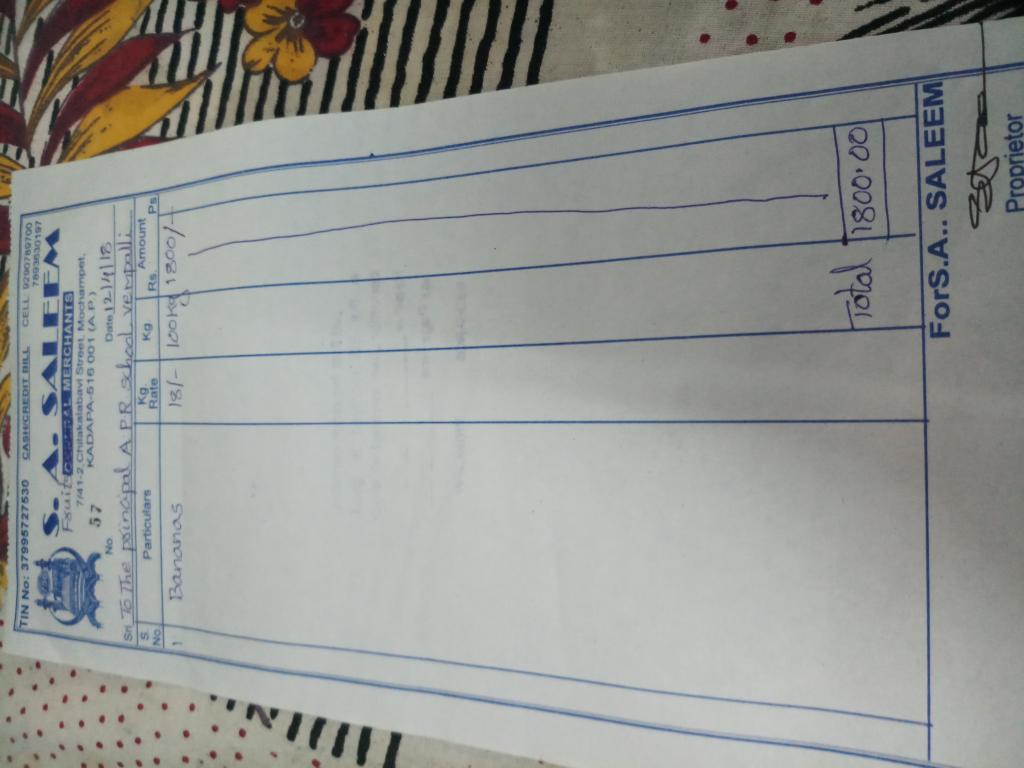 TIN No: 37995727530 CASH/CREDIT BILL CELL: 9290789700
7893630197
S. A. SALEEM
Fruits MERCHANTS
7/41-2, Chilakalabavi Street, Mochampet,
KADAPA-516 001 (A.P.)
No. 57 Date 12/4/18
Sri To The principal A P R School vempalli
S. No. Particulars Kg. Rate Kg. Amount Rs. Ps
1 Bananas 18/- 100 Kg 1800/-
Total 1800.00
For S.A.. SALEEM
Proprietor